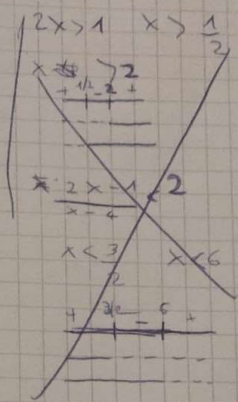 2x > 1 x > 1/2
x > 2
+ 1/2 - 2 +
2x - 1 < 2
x - 4
x < 3/2 x < 6
+ 3/2 - 6 +